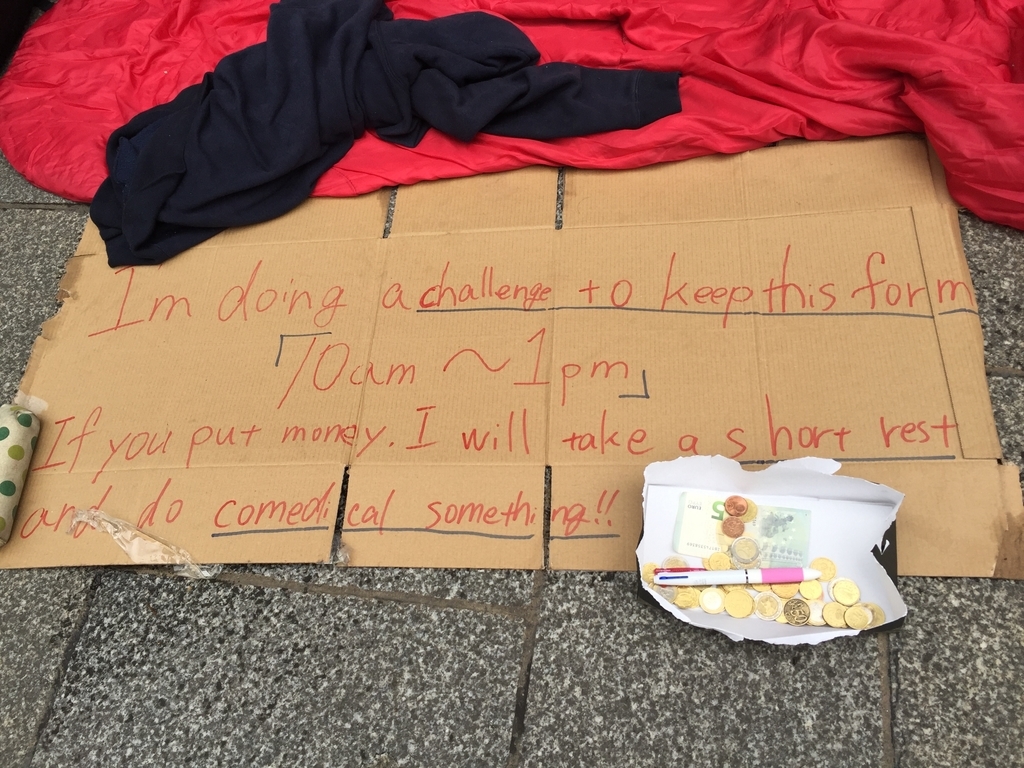 I'm doing a challenge to keep this form
「10am ~ 1pm」
If you put money. I will take a short rest
and do comedical something!!
5
EURO